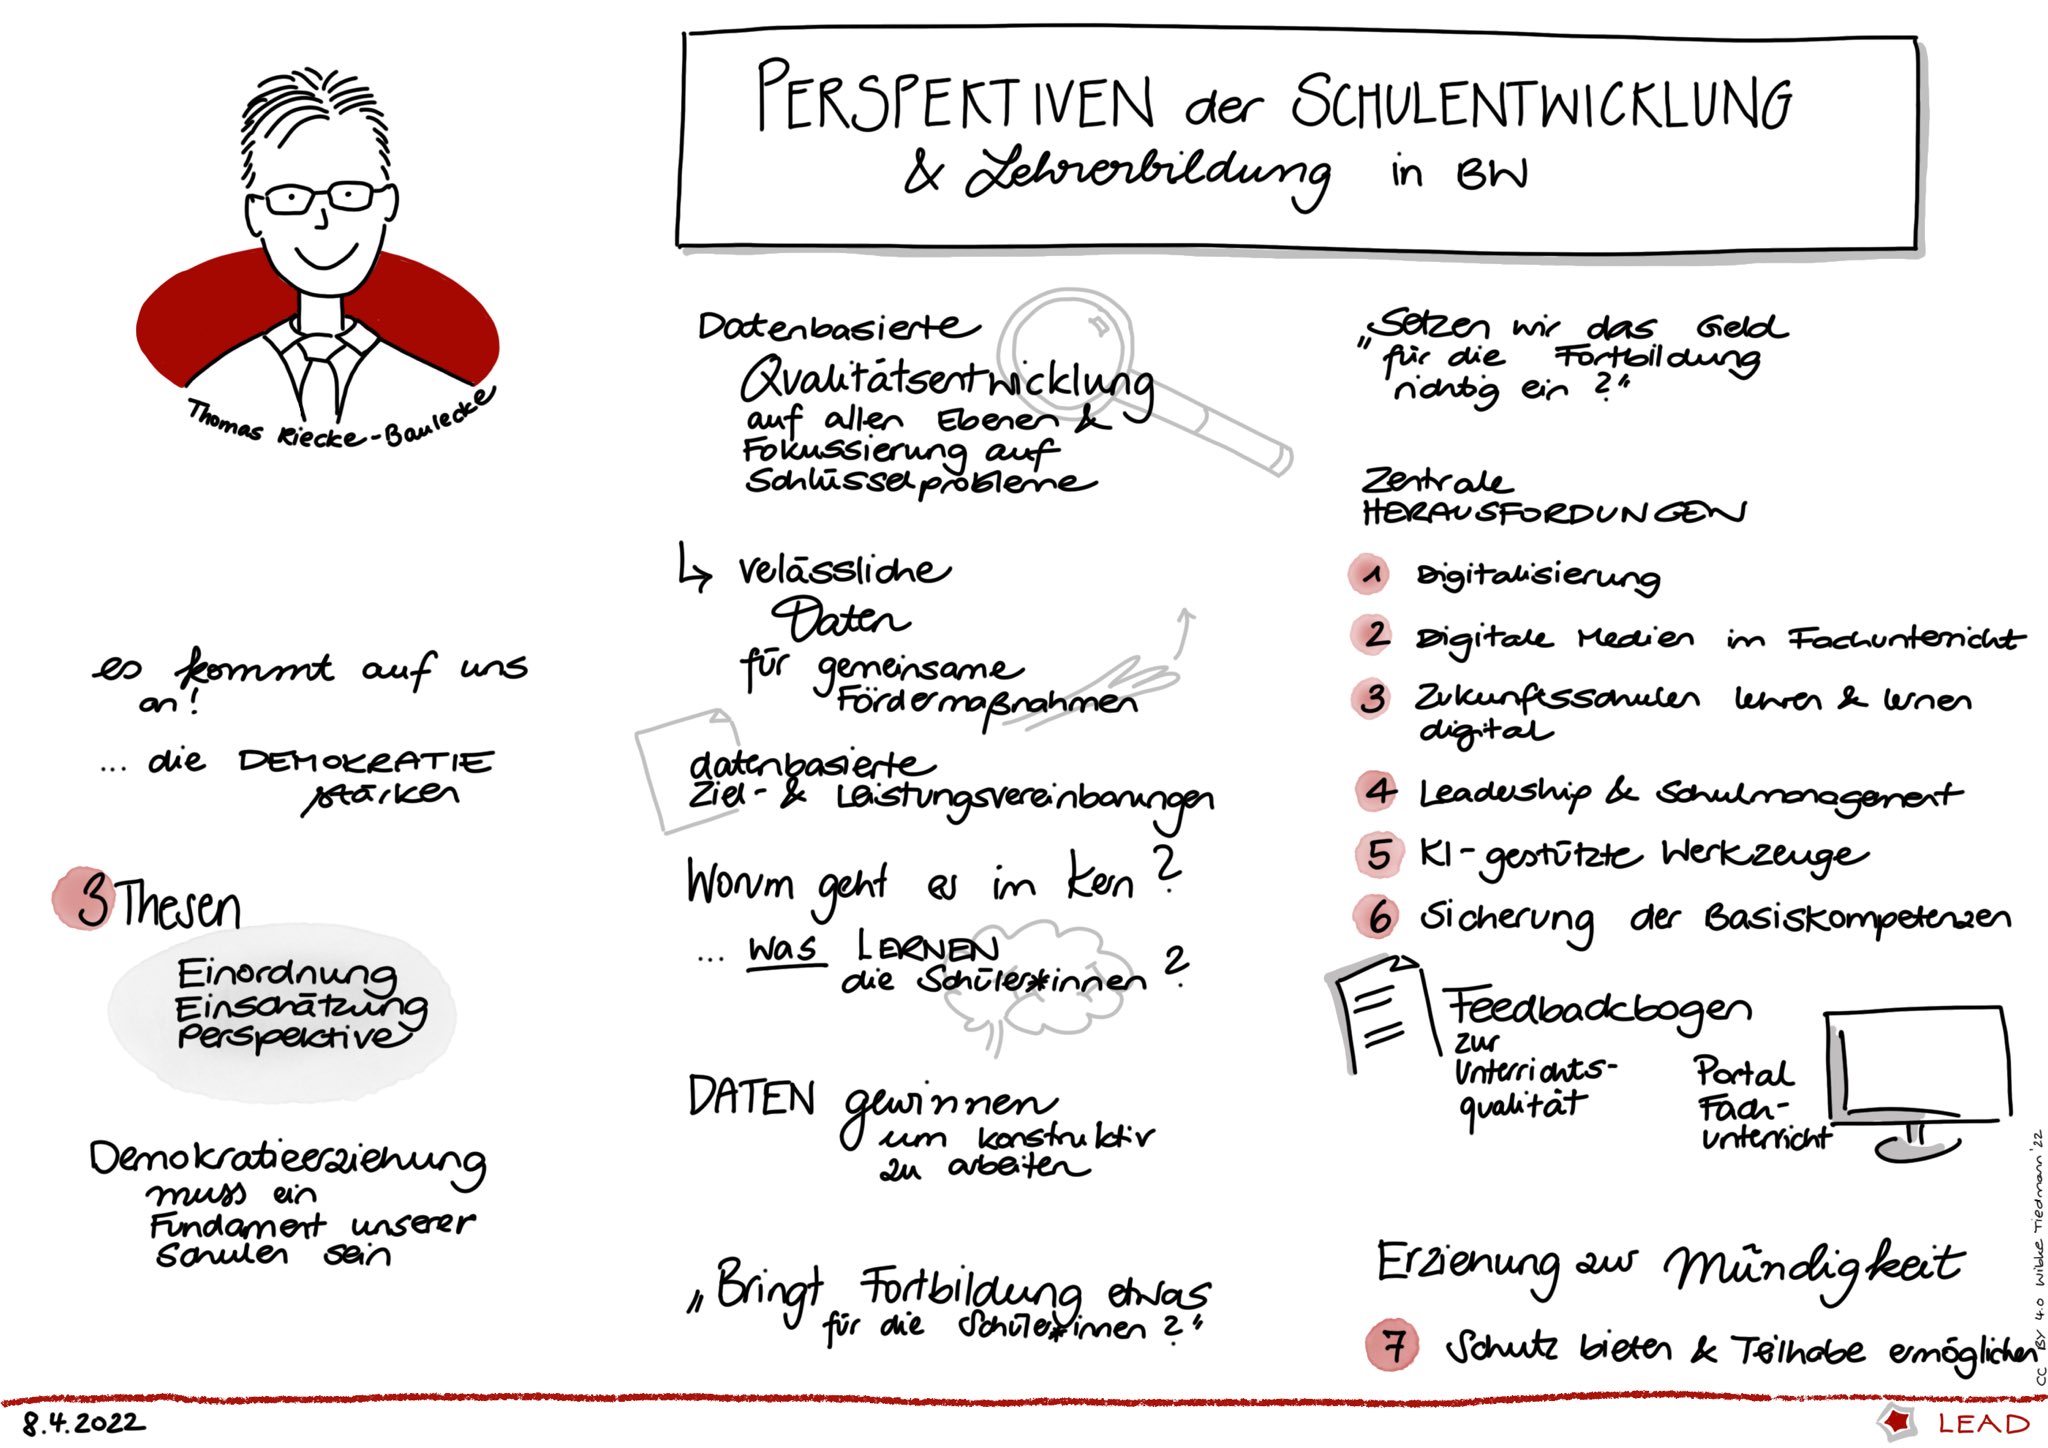 PERSPEKTIVEN der SCHULENTWICKLUNG
& Lehrerbildung in BW
Thomas Riecke-Baulecke
es kommt auf uns
an!
... die DEMOKRATIE
stärken
3 Thesen
Einordnung
Einschätzung
Perspektive
Demokratieerziehung
muss ein
Fundament unserer
Schulen sein
Datenbasierte
Qualitätsentwicklung
auf allen Ebenen &
Fokussierung auf
Schlüsselprobleme
↳ velässliche
Daten
für gemeinsame
Fördermaßnahmen
datenbasierte
Ziel- & Leistungsvereinbarungen
Worum geht es im Kern?
... was LERNEN
die Schüler*innen?
DATEN gewinnen
um konstruktiv
zu arbeiten
„Bringt Fortbildung etwas
für die Schüler*innen?“
„Setzen wir das Geld
für die Fortbildung
richtig ein?“
Zentrale
HERAUSFORDUNGEN
1 Digitalisierung
2 Digitale Medien im Fachunterricht
3 Zukunftsschulen lehren & lernen
digital
4 Leadership & Schulmanagement
5 KI-gestützte Werkzeuge
6 Sicherung der Basiskompetenzen
Feedbackbogen
zur
Unterrichts-
qualität
Portal
Fach-
unterricht
Erziehung zur Mündigkeit
7 Schutz bieten & Teilhabe ermöglichen
CC BY 4.0 Wibke Tiedmann '22
8.4.2022
LEAD